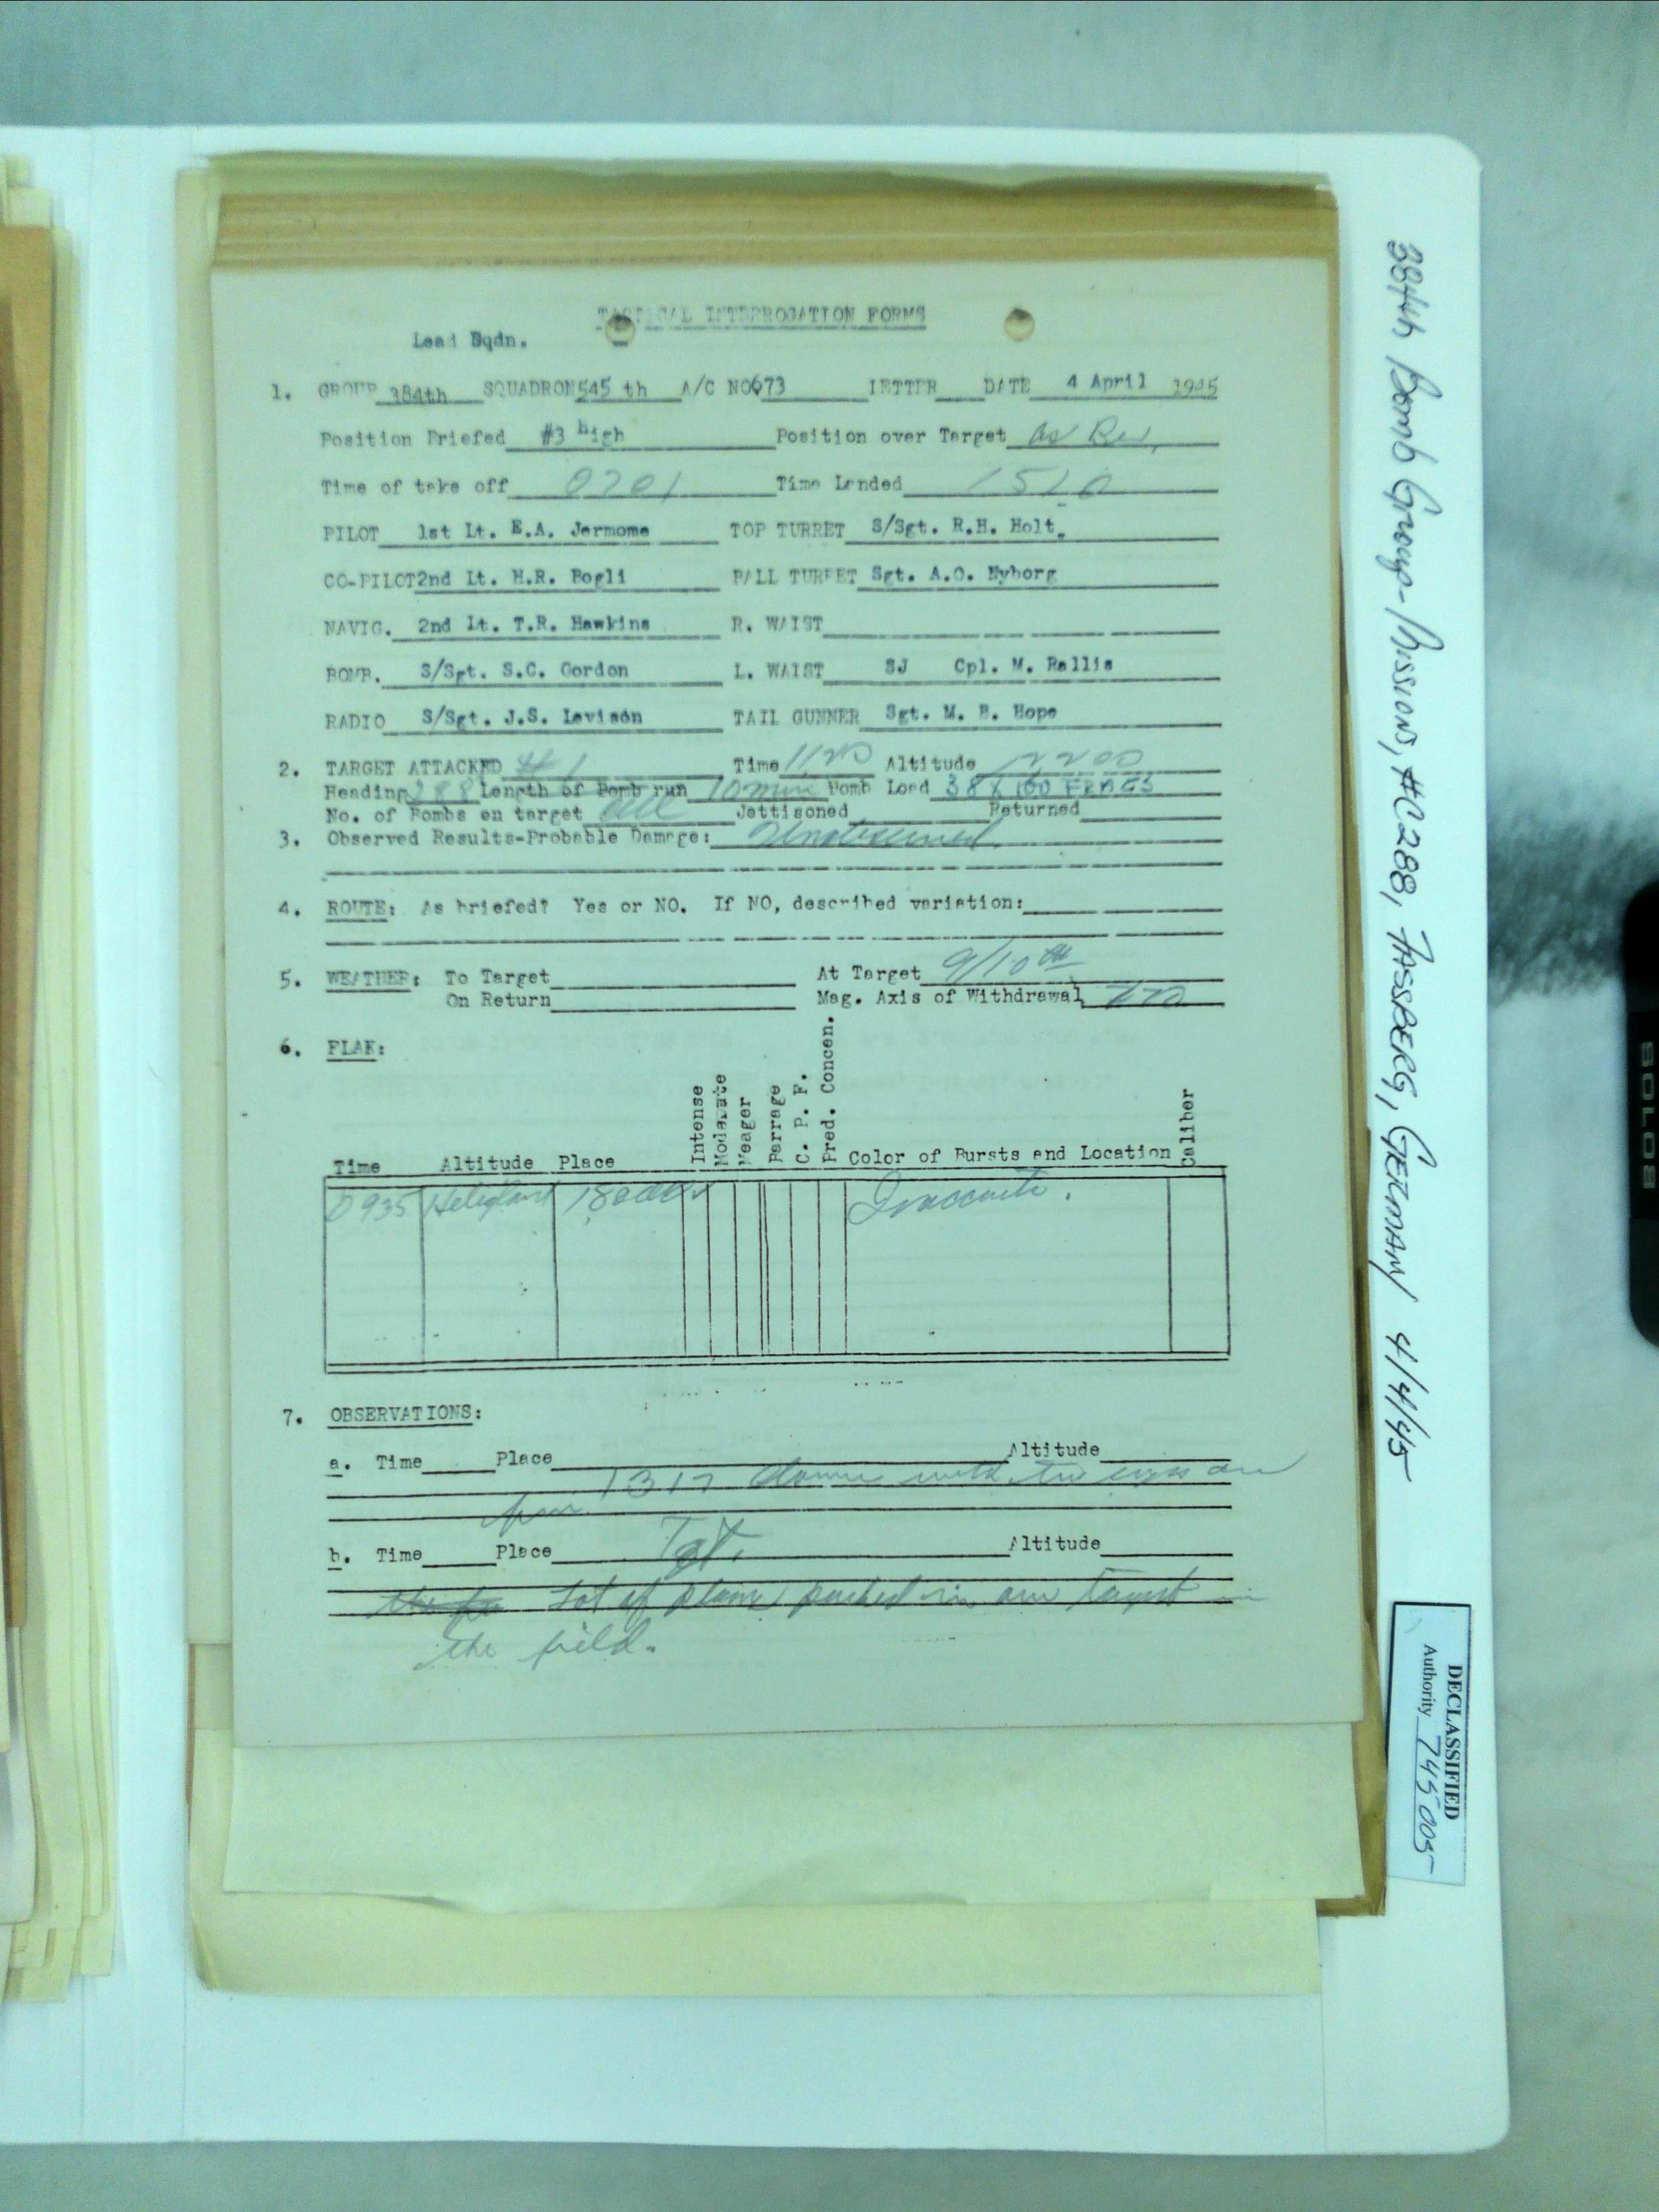 TACTICAL INTERROGATION FORMS
Lead Sqdn.
1. GROUP 384th SQUADRON 545 th A/C NO 673 LETTER DATE 4 April 1945
Position Briefed #3 high Position over Target As Br.
Time of take off 0701 Time Landed 1510
PILOT 1st Lt. E.A. Jermome TOP TURRET S/Sgt. R.H. Holt.
CO-PILOT 2nd Lt. H.R. Bogli BALL TURRET Sgt. A.O. Nyborg
NAVIG. 2nd Lt. T.R. Hawkins R. WAIST
BOMB. S/Sgt. S.C. Gordon L. WAIST SJ Cpl. M. Rallis
RADIO S/Sgt. J.S. Levison TAIL GUNNER Sgt. M. B. Hope
2. TARGET ATTACKED #1 Time Altitude 2200
Heading 288 Length of Bomb run 10 min Bomb Load 38 X 100 FRAGS
No. of Bombs on target all Jettisoned Returned
3. Observed Results-Probable Damage: Unobserved
4. ROUTE: As briefed? Yes or NO. If NO, described variation:
5. WEATHER: To Target At Target 9/10 th
On Return Mag. Axis of Withdrawal
6. FLAK:
Time Altitude Place Intense Moderate Meager Barrage C. P. F. Pred. Concen. Color of Bursts and Location Caliber
0935 Heligoland Inaccurate.
7. OBSERVATIONS:
a. Time Place Altitude
B17 down with two engs on
fire.
b. Time Place Tgt. Altitude
Lot of planes parked in our target in
the field.
384th Bomb Group-Missions, #C288, FASSBERG, GERMANY 4/4/45
DECLASSIFIED
Authority 745005
SOLO8